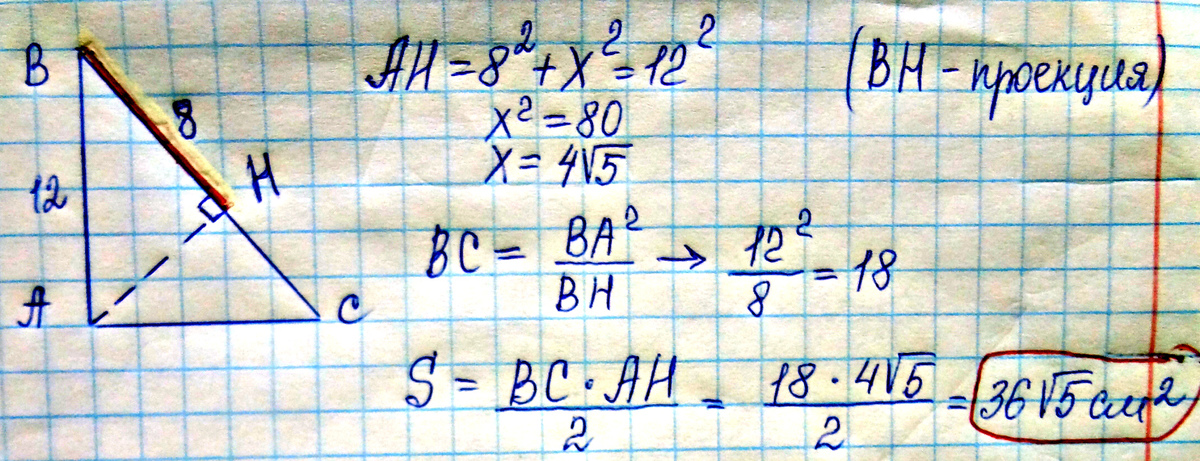 B
8
H
12
A
C
AH = 8² + x² = 12²
(BH - проекция)
x² = 80
x = 4√5
BC = BA²/BH → 12²/8 = 18
S = BC · AH/2 = 18 · 4√5/2 = 36√5 см²